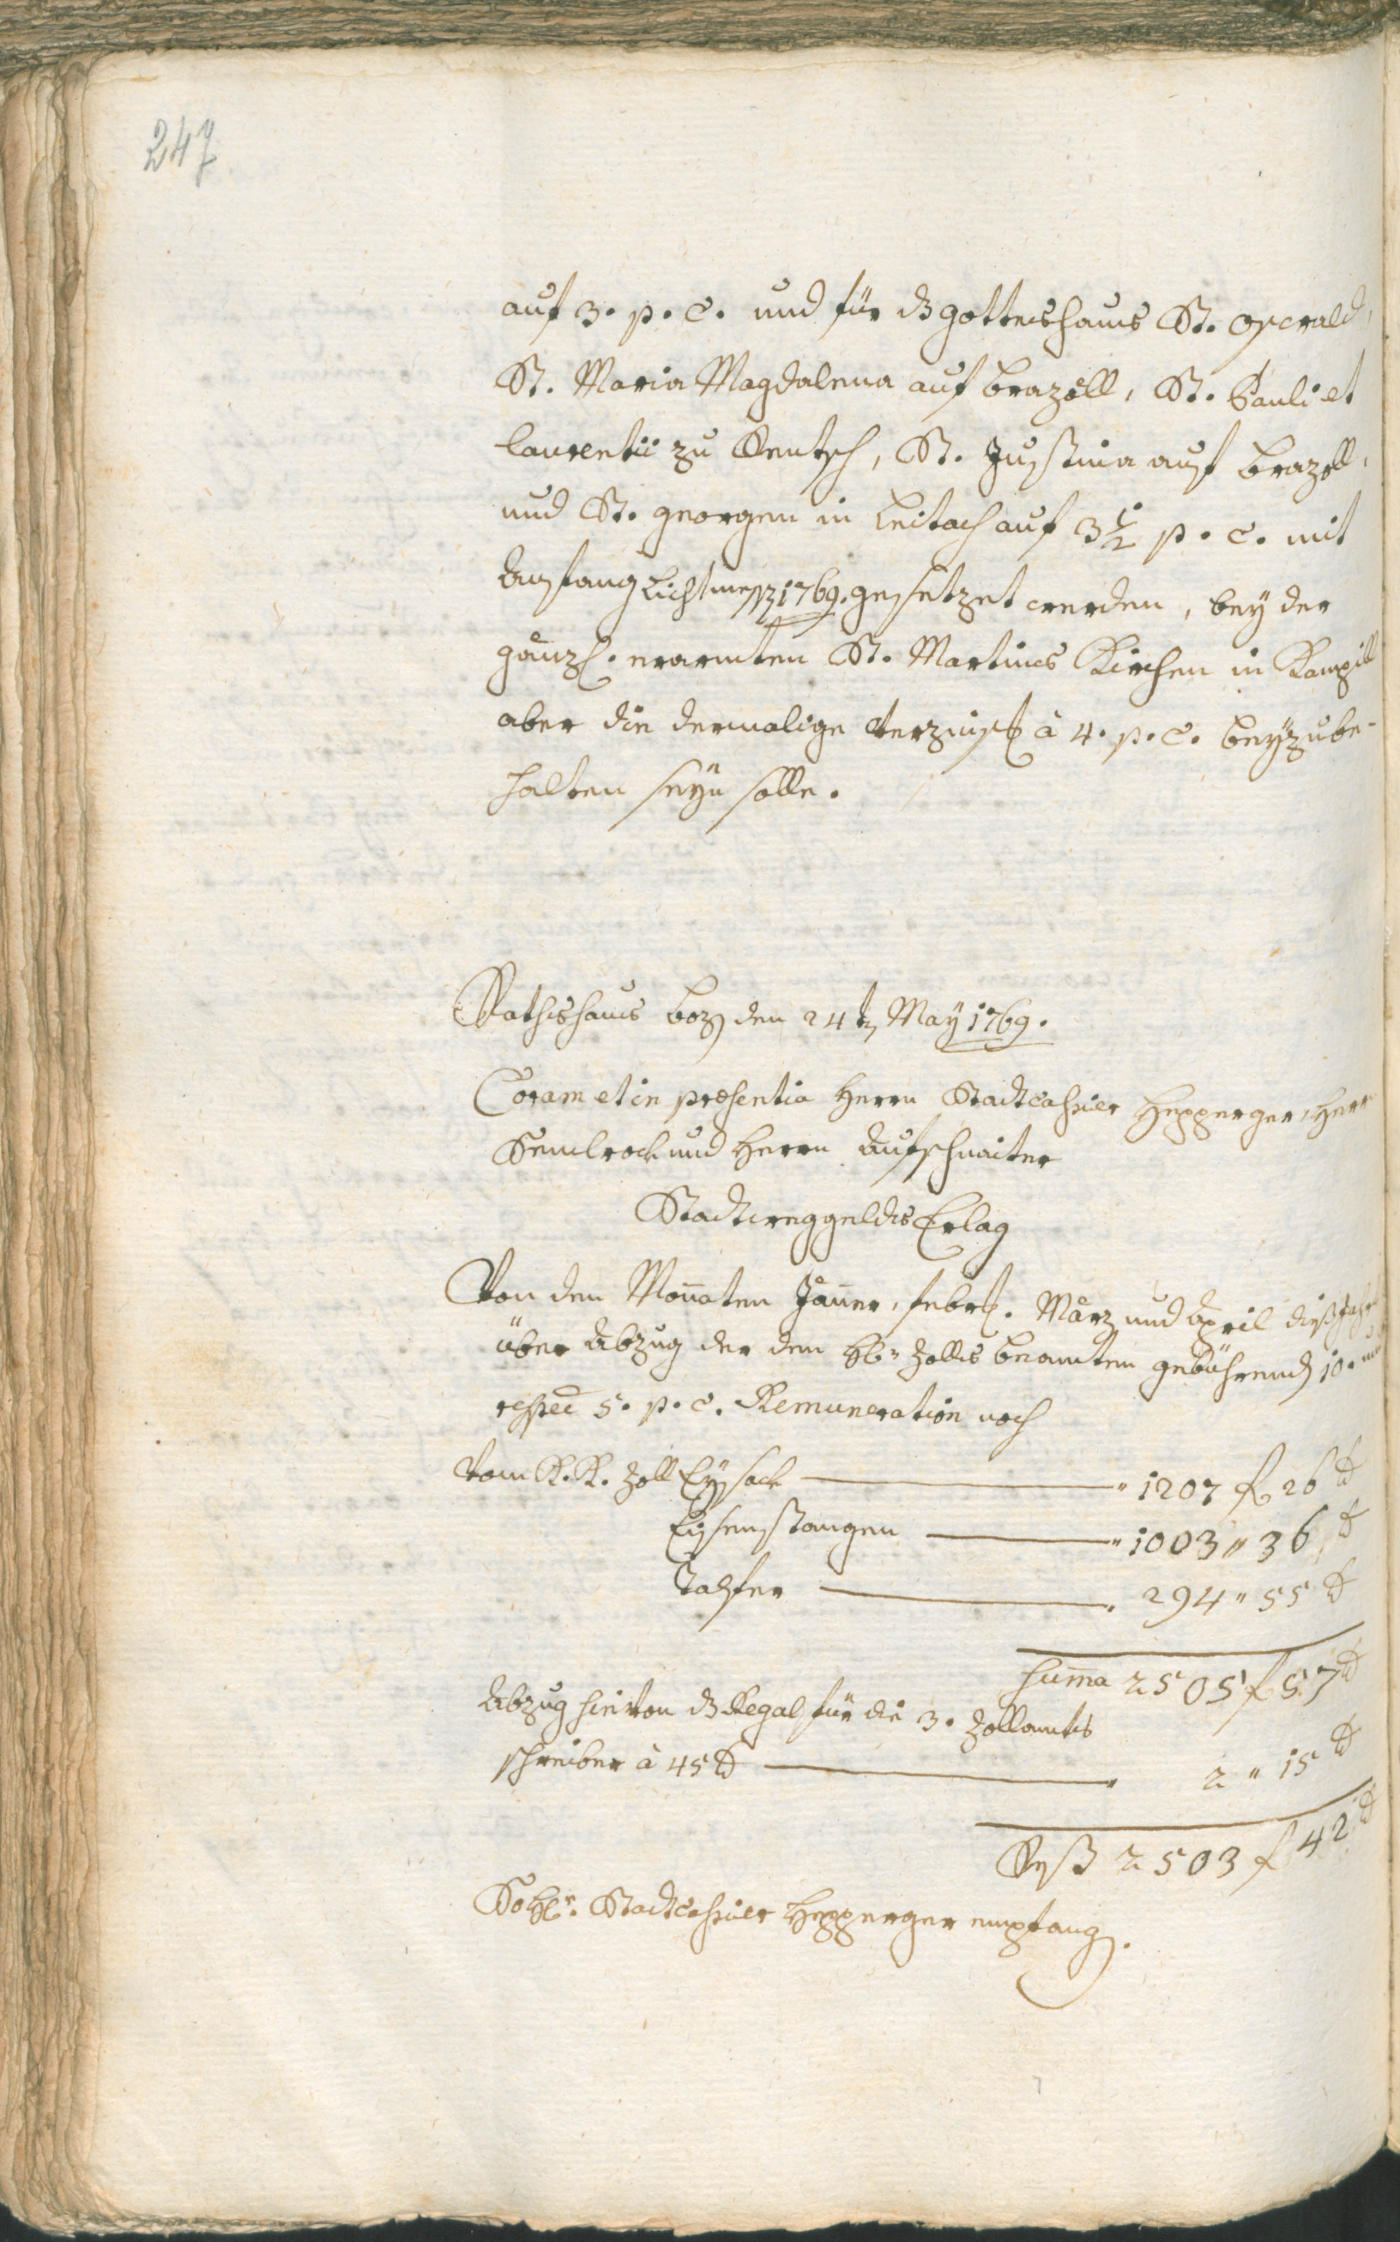 247
auf 3. p. C. und für dß gotteshaus St. Oswald,
St. Maria Magdalena auf Brazöll, St. Pauli et
Laurentii zu Rentsch, St. Justina auf Brazoll,
und St. georgen in Leitach auf 3 1/2 p. C. mit
Anfang Lichtmeß 1769. gesetzet werden, bey der
gänzl. erarmten St. Martins Kirchen in Kampill
aber die dermalige Verzinsg à 4. p. C. beyzube-
halten seyn solle.
Rathshaus Boz den 24t May 1769.
Coram et in præsentia Herrn Stadtcassier Hepperger, Herr
Semlrock und Herrn Aufschnaiter
Stadtweggelds Erlag
Von den Monaten Jäner, febr. März und April diß Jahr
über Abzug der den Hl. Zolls beamten gebührend 10.
respec 5. p. C. Remuneration noch
Vom K. K. Zoll Eysack " 1207 f 26 d
Eisenstangen " 1003 " 36 d
Talfer " 294 " 55 d
Suma 2505 f 57 d
Abzug hievon dß Regal für die 3. Zollamts
schreiber à 45 d " 2 " 15 d
Rest 2503 f 42 d
So Hr. Stadtcassier Hepperger empfang.